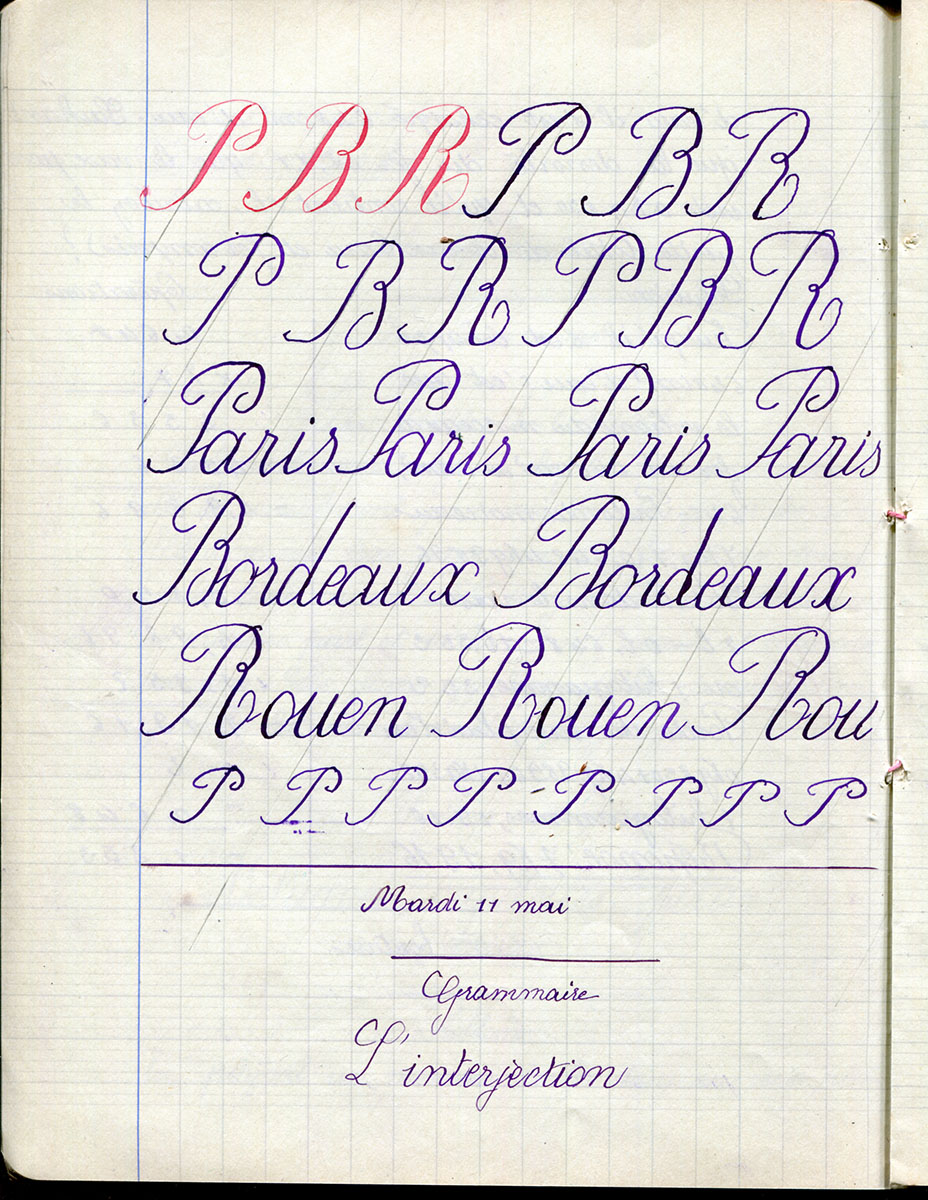 P B R P B R
P B R P B R
Paris Paris Paris Paris
Bordeaux Bordeaux
Rouen Rouen Rou
P P P P P P P P
Mardi 11 mai
Grammaire
L'interjection